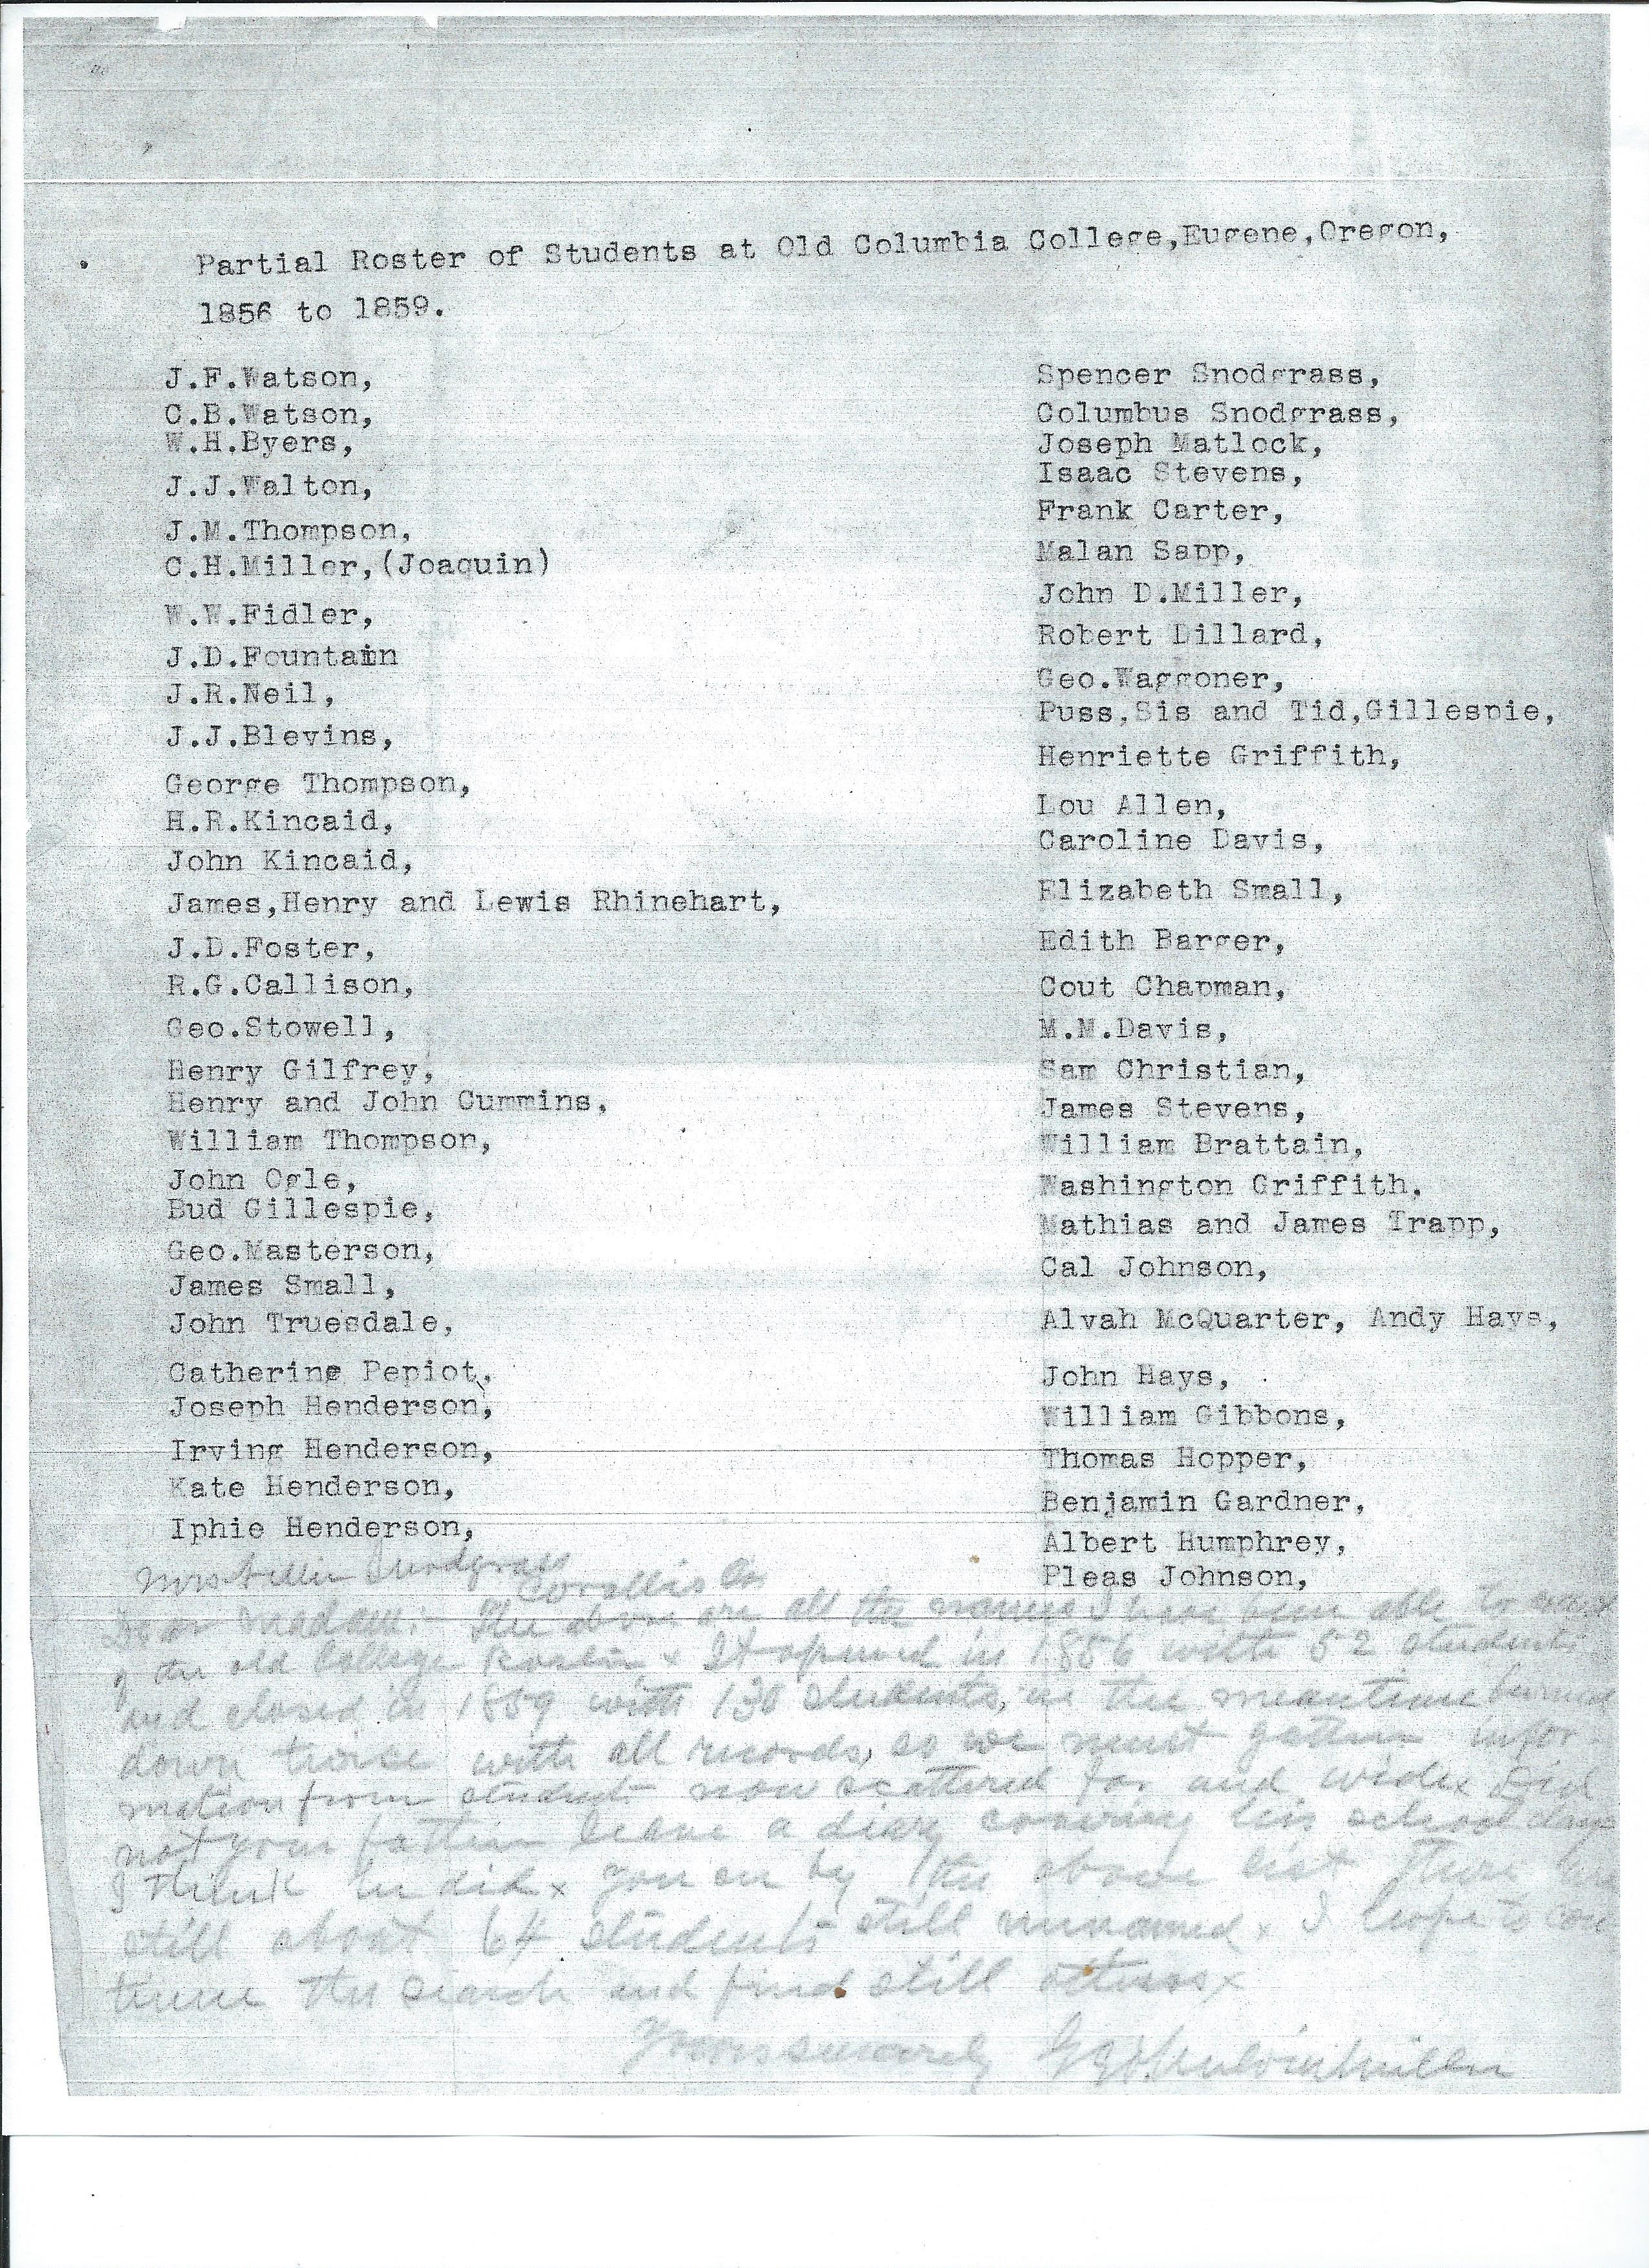 Partial Roster of Students at Old Columbia College,Eugene,Oregon,
1856 to 1859.
J.F.Watson,
C.B.Watson,
W.H.Byers,
J.J.Walton,
J.M.Thompson,
C.H.Miller,(Joaquin)
W.W.Fidler,
J.D.Fountain
J.R.Neil,
J.J.Blevins,
George Thompson,
H.R.Kincaid,
John Kincaid,
James,Henry and Lewis Rhinehart,
J.D.Foster,
R.G.Callison,
Geo.Stowell,
Henry Gilfrey,
Henry and John Cummins,
William Thompson,
John Ogle,
Bud Gillespie,
Geo.Masterson,
James Small,
John Truesdale,
Catherine Pepiot,
Joseph Henderson,
Irving Henderson,
Kate Henderson,
Iphie Henderson,
Spencer Snodgrass,
Columbus Snodgrass,
Joseph Matlock,
Isaac Stevens,
Frank Carter,
Malan Sapp,
John D.Miller,
Robert Dillard,
Geo.Waggoner,
Puss,Sis and Tid,Gillespie,
Henriette Griffith,
Lou Allen,
Caroline Davis,
Elizabeth Small,
Edith Barger,
Cout Chapman,
M.M.Davis,
Sam Christian,
James Stevens,
William Brattain,
Washington Griffith,
Mathias and James Trapp,
Cal Johnson,
Alvah McQuarter, Andy Hays,
John Hays,
William Gibbons,
Thomas Hopper,
Benjamin Gardner,
Albert Humphrey,
Pleas Johnson,
Mrs Snodgrass
Corvallis Or
Dear Madam:- The above are all the names I have been able to
of the old College x It opened in 1856 with 52 students
and closed in 1859 with 130 students, in the meantime burned
down twice with all records, so we must gather infor
mation from students now scattered far and wide x Did
not your father leave a diary covering his school days
I think he did x You see by the above list there are
still about 64 students still unnamed x I hope to con
tinue the search and find still others x
Yours sincerely Miller